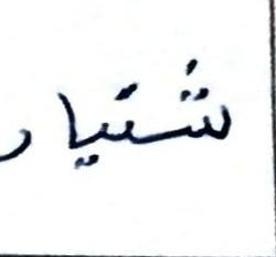 شتيار